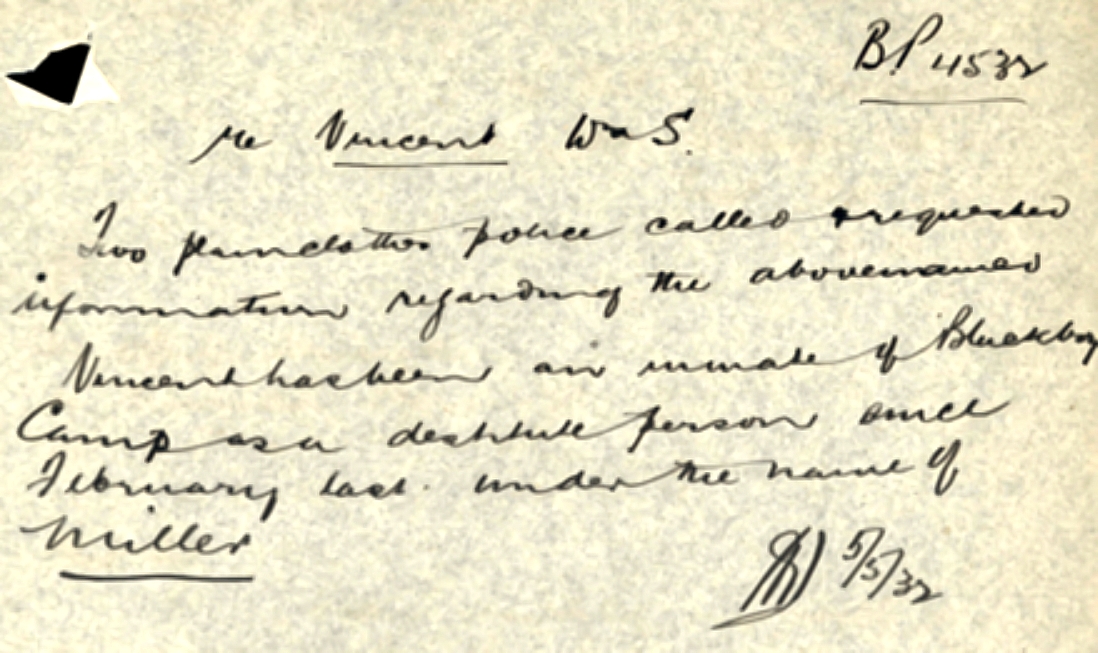 BP 4532
re Vincent Wm S.
Two plainclothes police called & requested
information regarding the abovenamed
Vincent has been an inmate of Blackboy
Camp as a destitute person since
February last. under the name of
Miller
5/5/32